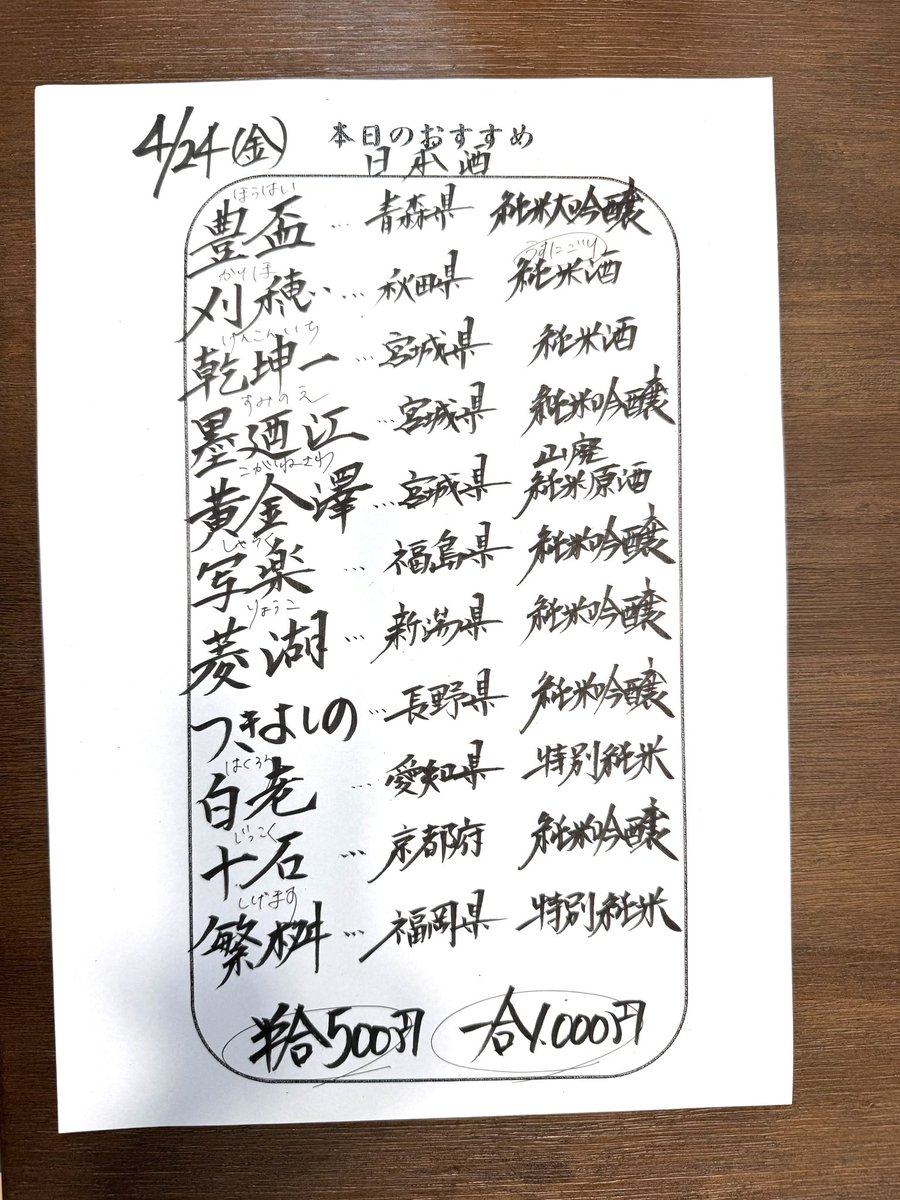 4/24(金) 本日のおすすめ
日本酒
ほうはい
豊盃 … 青森県 純米大吟醸
かりほ うすにごり
刈穂 … 秋田県 純米酒
けんこんいち
乾坤一 … 宮城県 純米酒
すみのえ
墨廼江 … 宮城県 純米吟醸
こがねさわ 山廃
黄金澤 … 宮城県 純米原酒
しゃらく
写楽 … 福島県 純米吟醸
りょうこ
菱湖 … 新潟県 純米吟醸
つきよしの … 長野県 純米吟醸
はくろう
白老 … 愛知県 特別純米
じっこく
十石 … 京都府 純米吟醸
しげます
繁桝 … 福岡県 特別純米
半合500円 一合1.000円